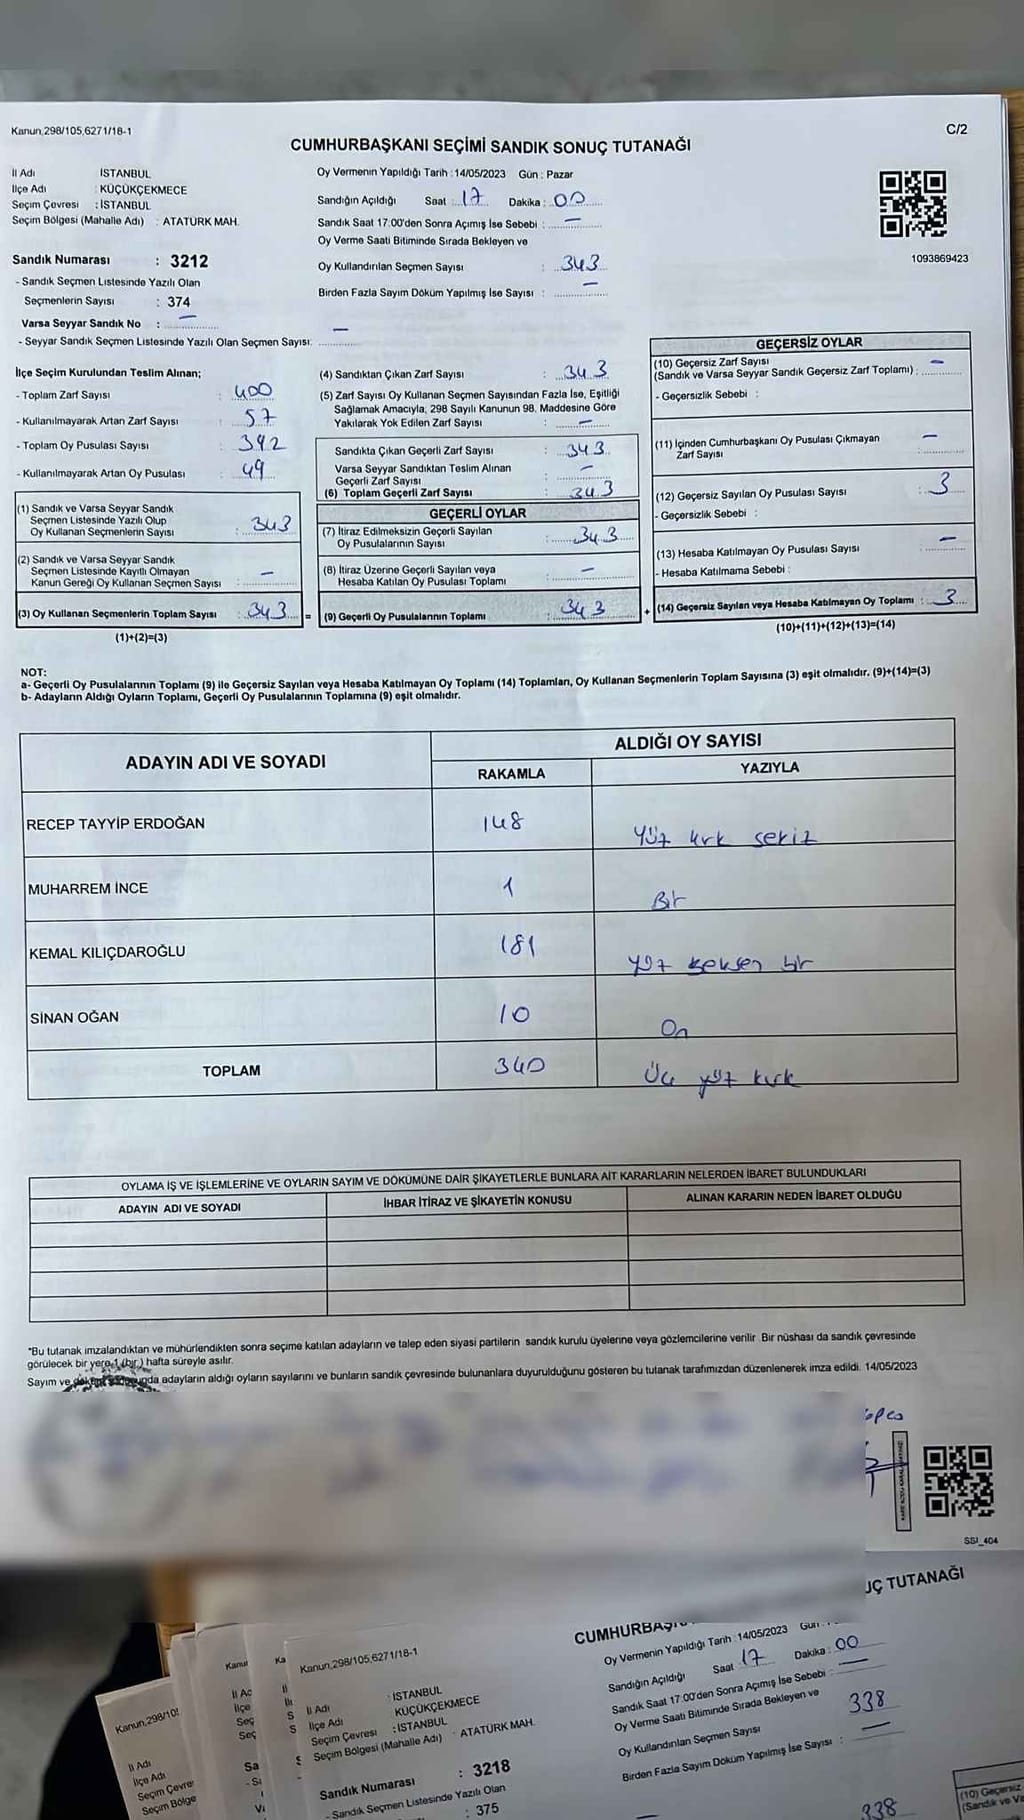 Kanun,298/105,6271/18-1
C/2
CUMHURBAŞKANI SEÇİMİ SANDIK SONUÇ TUTANAĞI
İl Adı İSTANBUL
İlçe Adı : KÜÇÜKÇEKMECE
Seçim Çevresi : İSTANBUL
Seçim Bölgesi (Mahalle Adı) : ATATÜRK MAH.
Sandık Numarası : 3212
- Sandık Seçmen Listesinde Yazılı Olan
Seçmenlerin Sayısı : 374
Varsa Seyyar Sandık No : —
- Seyyar Sandık Seçmen Listesinde Yazılı Olan Seçmen Sayısı: —
Oy Vermenin Yapıldığı Tarih : 14/05/2023 Gün : Pazar
Sandığın Açıldığı Saat : 17 Dakika : 00
Sandık Saat 17:00'den Sonra Açımış İse Sebebi : —
Oy Verme Saati Bitiminde Sırada Bekleyen ve
Oy Kullandırılan Seçmen Sayısı : 343
Birden Fazla Sayım Döküm Yapılmış İse Sayısı : —
1093869423
İlçe Seçim Kurulundan Teslim Alınan;
- Toplam Zarf Sayısı : 400
- Kullanılmayarak Artan Zarf Sayısı : 57
- Toplam Oy Pusulası Sayısı : 392
- Kullanılmayarak Artan Oy Pusulası : 49
(1) Sandık ve Varsa Seyyar Sandık
Seçmen Listesinde Yazılı Olup
Oy Kullanan Seçmenlerin Sayısı : 343
(2) Sandık ve Varsa Seyyar Sandık
Seçmen Listesinde Kayıtlı Olmayan
Kanun Gereği Oy Kullanan Seçmen Sayısı : —
(3) Oy Kullanan Seçmenlerin Toplam Sayısı : 343 =
(1)+(2)=(3)
(4) Sandıktan Çıkan Zarf Sayısı : 343
(5) Zarf Sayısı Oy Kullanan Seçmen Sayısından Fazla İse, Eşitliği
Sağlamak Amacıyla, 298 Sayılı Kanunun 98. Maddesine Göre
Yakılarak Yok Edilen Zarf Sayısı : —
Sandıkta Çıkan Geçerli Zarf Sayısı : 343
Varsa Seyyar Sandıktan Teslim Alınan
Geçerli Zarf Sayısı : —
(6) Toplam Geçerli Zarf Sayısı : 343
GEÇERLİ OYLAR
(7) İtiraz Edilmeksizin Geçerli Sayılan
Oy Pusulalarının Sayısı : 343
(8) İtiraz Üzerine Geçerli Sayılan veya
Hesaba Katılan Oy Pusulası Toplamı : —
(9) Geçerli Oy Pusulalarının Toplamı : 343 +
GEÇERSİZ OYLAR
(10) Geçersiz Zarf Sayısı
(Sandık ve Varsa Seyyar Sandık Geçersiz Zarf Toplamı) : —
- Geçersizlik Sebebi :
(11) İçinden Cumhurbaşkanı Oy Pusulası Çıkmayan
Zarf Sayısı : —
(12) Geçersiz Sayılan Oy Pusulası Sayısı : 3
- Geçersizlik Sebebi :
(13) Hesaba Katılmayan Oy Pusulası Sayısı : —
- Hesaba Katılmama Sebebi :
(14) Geçersiz Sayılan veya Hesaba Katılmayan Oy Toplamı : 3
(10)+(11)+(12)+(13)=(14)
NOT:
a- Geçerli Oy Pusulalarının Toplamı (9) ile Geçersiz Sayılan veya Hesaba Katılmayan Oy Toplamı (14) Toplamları, Oy Kullanan Seçmenlerin Toplam Sayısına (3) eşit olmalıdır. (9)+(14)=(3)
b- Adayların Aldığı Oyların Toplamı, Geçerli Oy Pusulalarının Toplamına (9) eşit olmalıdır.
ADAYIN ADI VE SOYADI
ALDIĞI OY SAYISI
RAKAMLA YAZIYLA
RECEP TAYYİP ERDOĞAN 148 Yüz kırk sekiz
MUHARREM İNCE 1 Bir
KEMAL KILIÇDAROĞLU 181 Yüz seksen bir
SİNAN OĞAN 10 On
TOPLAM 340 Üç yüz kırk
OYLAMA İŞ VE İŞLEMLERİNE VE OYLARIN SAYIM VE DÖKÜMÜNE DAİR ŞİKAYETLERLE BUNLARA AİT KARARLARIN NELERDEN İBARET BULUNDUKLARI
ADAYIN ADI VE SOYADI İHBAR İTİRAZ VE ŞİKAYETİN KONUSU ALINAN KARARIN NEDEN İBARET OLDUĞU
*Bu tutanak imzalandıktan ve mühürlendikten sonra seçime katılan adayların ve talep eden siyasi partilerin sandık kurulu üyelerine veya gözlemcilerine verilir. Bir nüshası da sandık çevresinde
görülecek bir yere 1 (bir) hafta süreyle asılır.
Sayım ve adayların aldığı oyların sayılarını ve bunların sandık çevresinde bulunanlara duyurulduğunu gösteren bu tutanak tarafımızdan düzenlenerek imza edildi. 14/05/2023
SSI_404
UÇ TUTANAĞI
Kanun,298/105,6271/18-1
İl Adı : İSTANBUL
İlçe Adı KÜÇÜKÇEKMECE
Seçim Çevresi : İSTANBUL
Seçim Bölgesi (Mahalle Adı) : ATATÜRK MAH.
Sandık Numarası : 3218
- Sandık Seçmen Listesinde Yazılı Olan
: 375
Oy Vermenin Yapıldığı Tarih : 14/05/2023
Sandığın Açıldığı Saat : 17 Dakika : 00
Sandık Saat 17:00'den Sonra Açımış İse Sebebi : —
Oy Verme Saati Bitiminde Sırada Bekleyen ve
Oy Kullandırılan Seçmen Sayısı 338
Birden Fazla Sayım Döküm Yapılmış İse Sayısı : —
338
(10) Geçersiz
(Sandık ve Va
Kanun,298/10
İl Adı
İlçe Adı
Seçim Çevre
Seçim Bölge